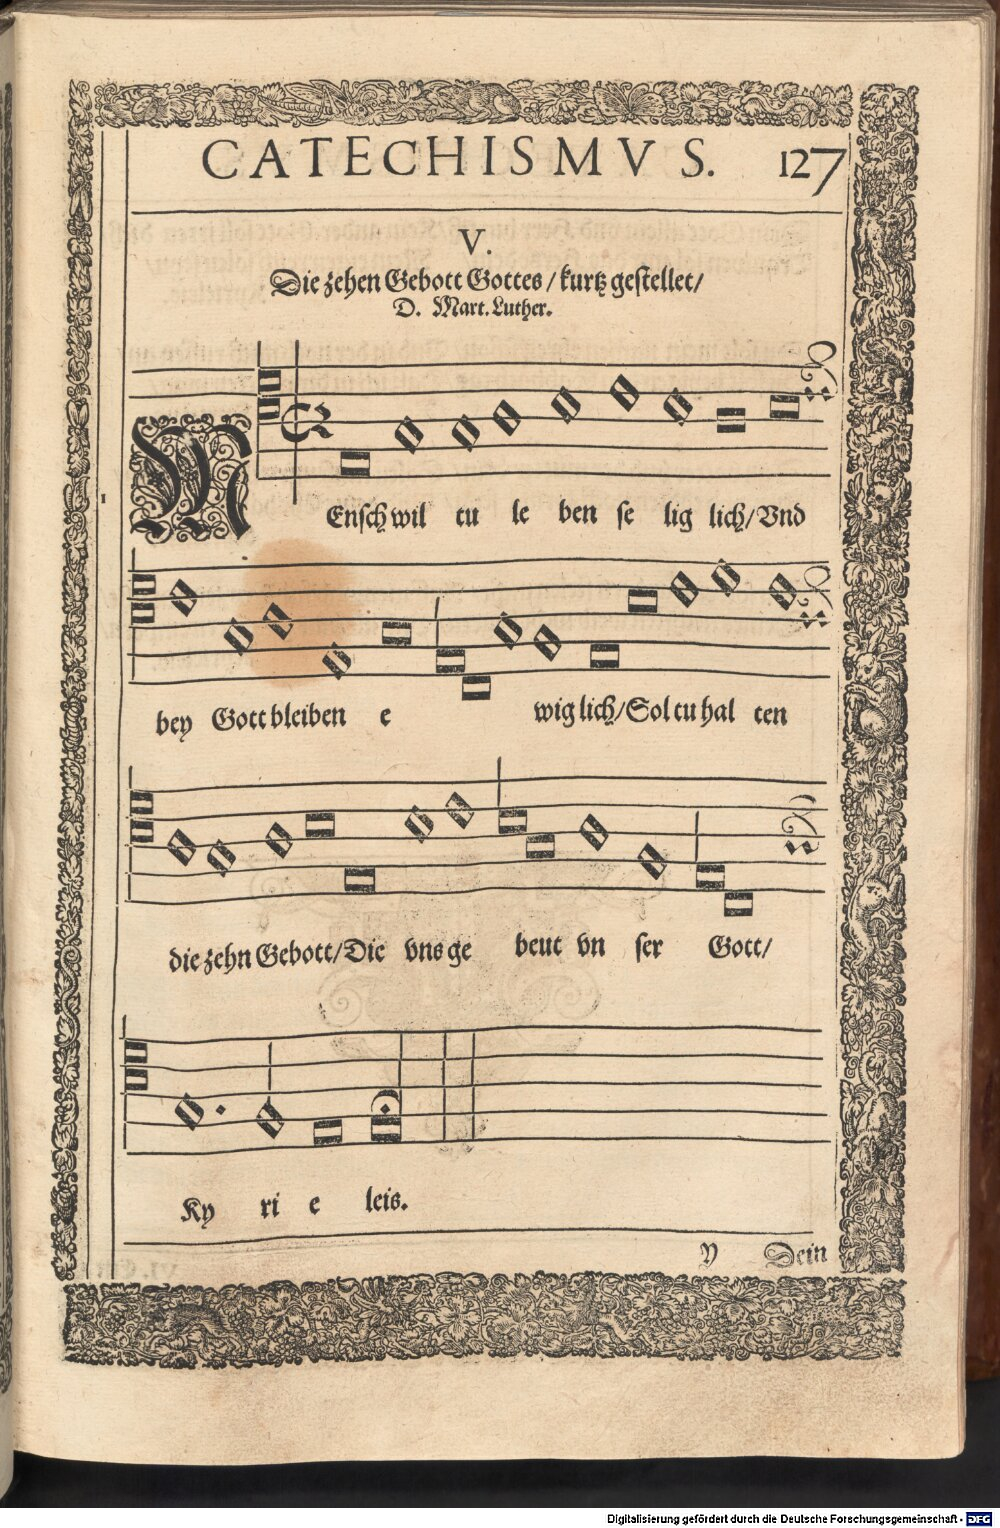 CATECHISMVS. 127
V.
Die zehen Gebott Gottes / kurtz gestellet/
D. Mart. Luther.
1
MEnsch wil tu le ben se lig lich/ Vnd
bey Gott bleiben e wig lich/ Sol tu hal ten
die zehn Gebott/ Die vns ge beut vn ser Gott/
Ky ri e leis.
Y Dein
Digitalisierung gefördert durch die Deutsche Forschungsgemeinschaft - DFG